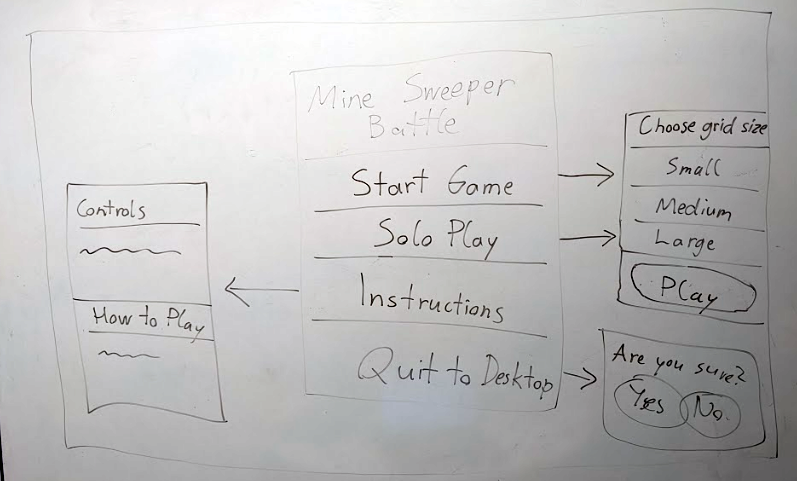 Mine Sweeper
Battle
Start Game
Solo Play
Instructions
Quit to Desktop
Controls
How to Play
Choose grid size
Small
Medium
Large
Play
Are you sure?
Yes
No